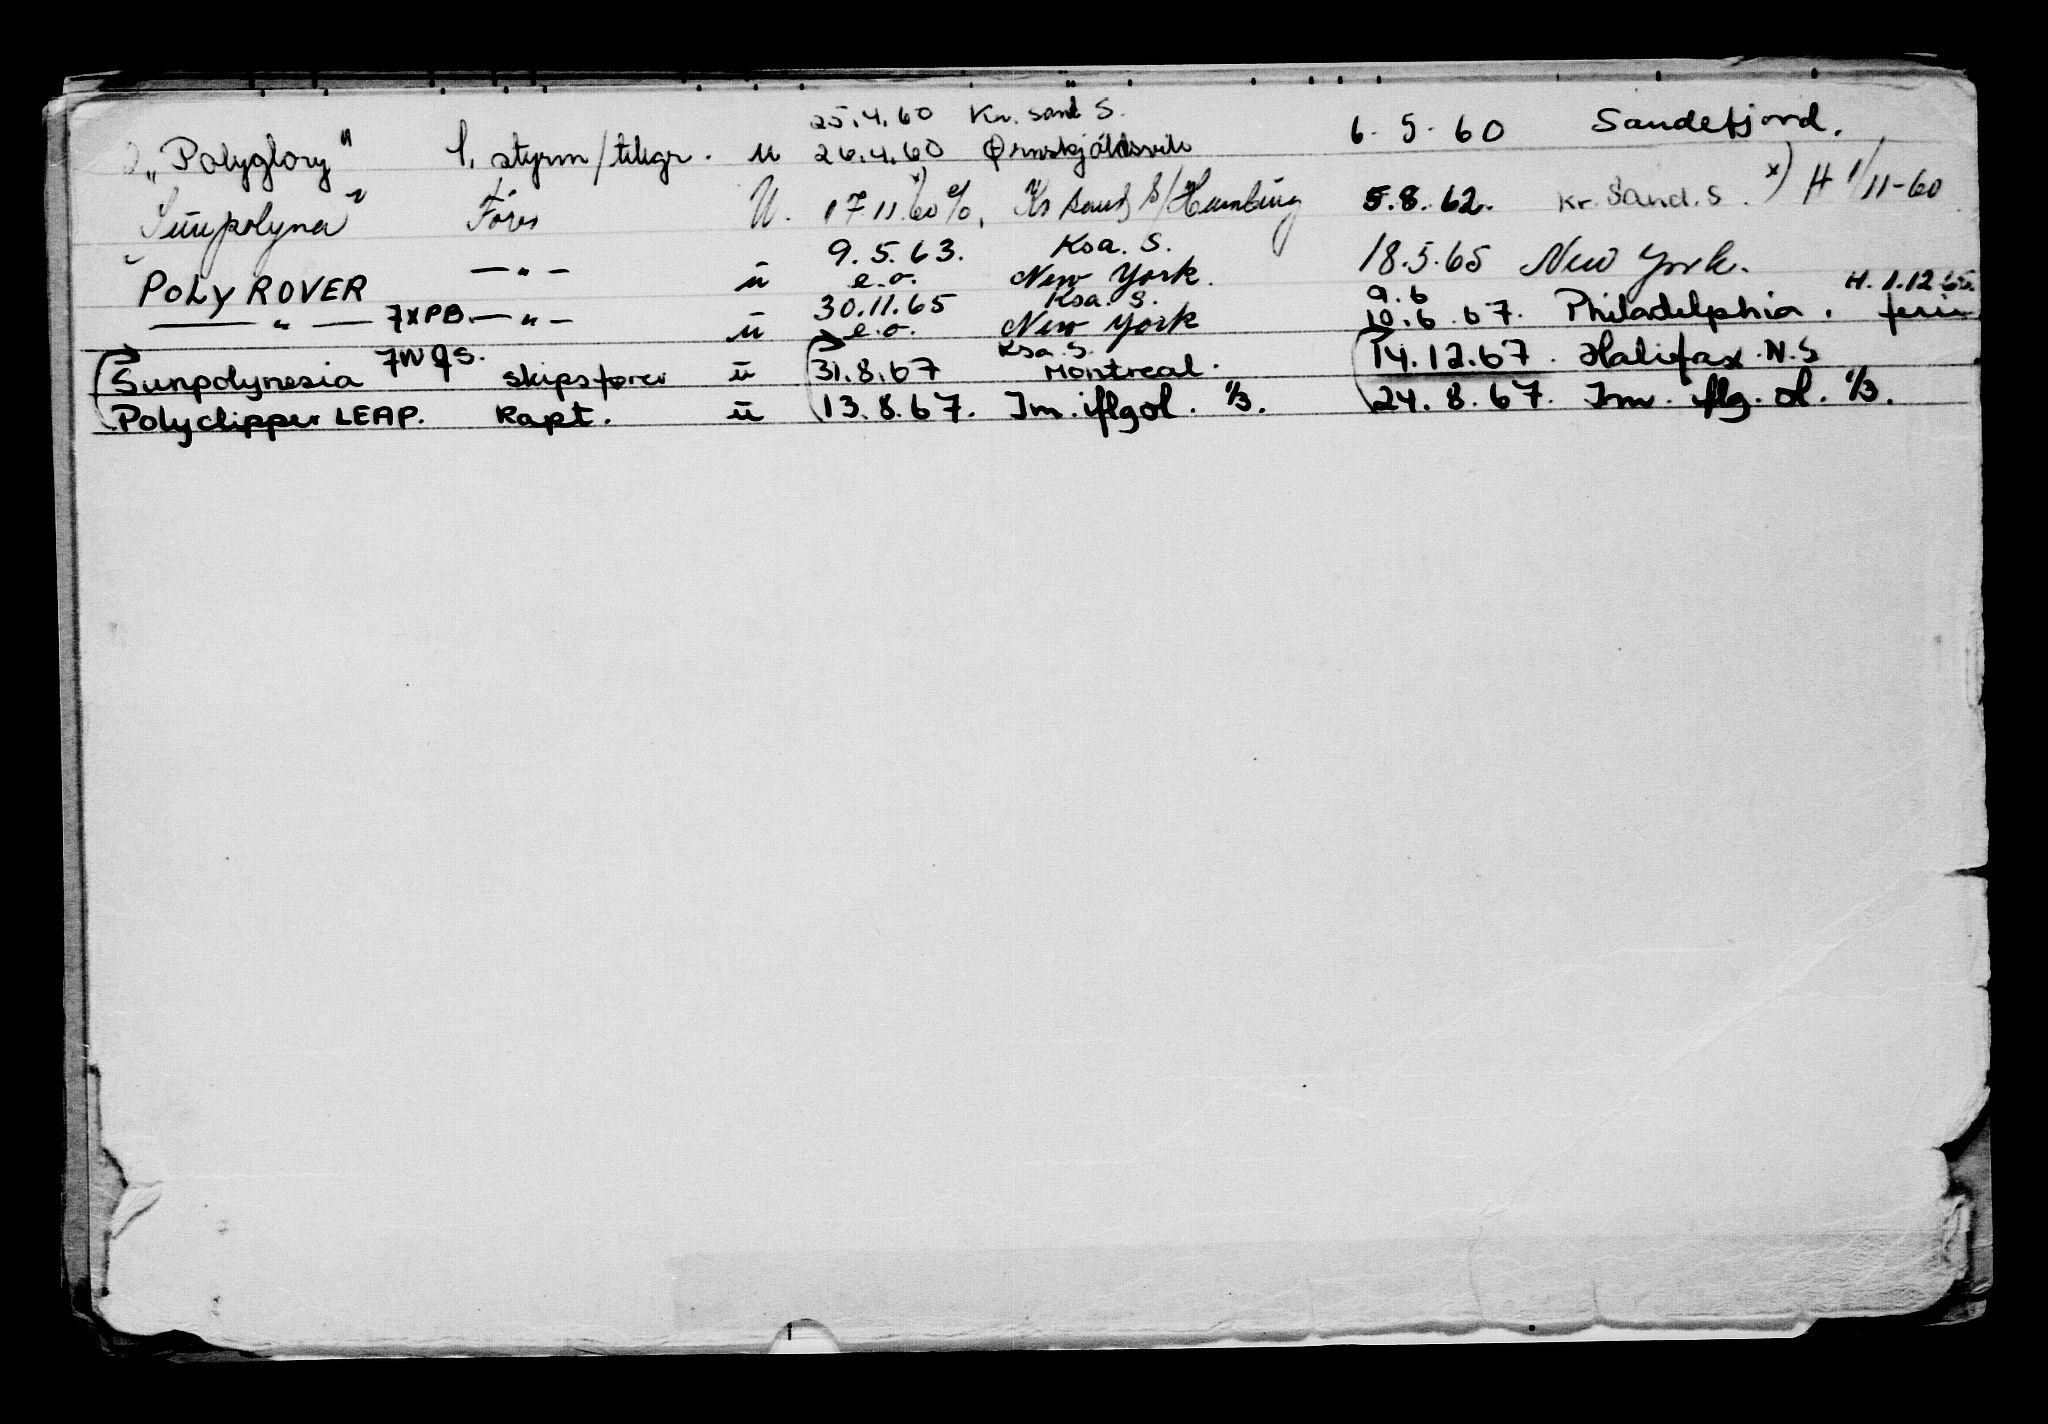 25.4.60 Kr. Sand S.
"Polyglory" 1. styrm/telegr. u 26.4.60 Ørnskjöldsvik 6.5.60 Sandefjord.
"Sunpolyna" Förer U. 17 11. 60 x) e/o, Kr Sand S/Hamburg 5.8.62. Kr. Sand. S. x) H 1/11-60
9.5.63. Ksa. S.
POLY ROVER —"— u e.o. New York. 18.5.65 New York.
30.11.65 Ksa. S. 9.6 H. 1.12.65.
—"— 7XPB. —"— u e.o. New York 10.6.67. Philadelphia. ferie
Ksa. S.
Sunpolynesia 7WQS. skipsfører u 31.8.67 Montreal. 14.12.67. Halifax. N.S
Polyclipper LEAP. Kapt. u 13.8.67. Im. iflg ol. 1/3. 24.8.67. Im. iflg. ol. 1/3.